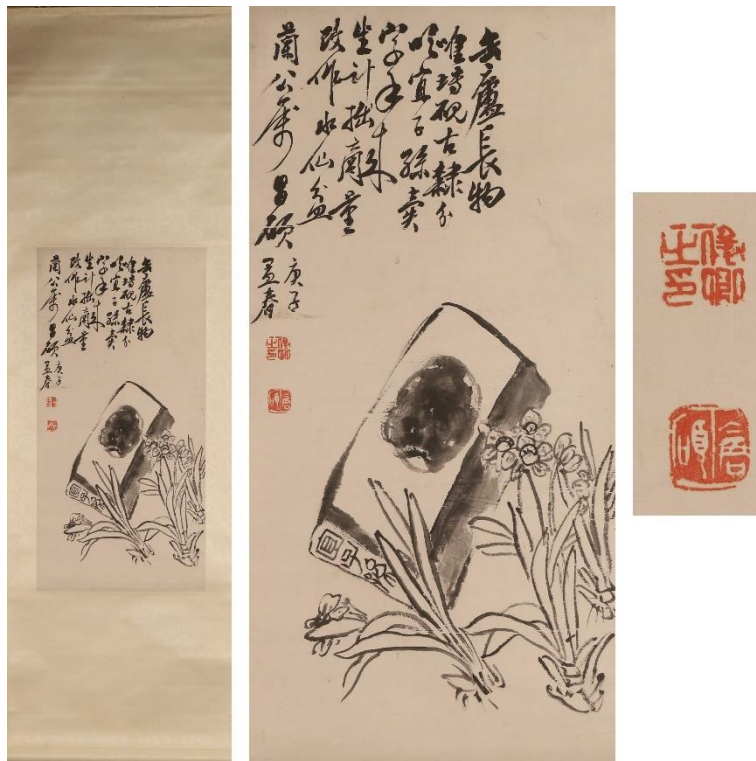 缶廬長物
唯塼硯古隸分
明宜子孫賣
字年來
生計拙商量
改作水仙盆
蘭公屬 昌碩
庚子
孟春
俊卿之印
倉碩
宜子孫